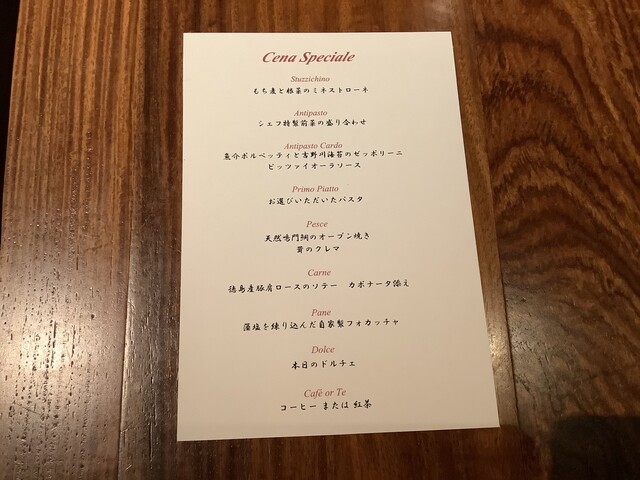 Cena Speciale
Stuzzichino
もち麦と根菜のミネストローネ
Antipasto
シェフ特製前菜の盛り合わせ
Antipasto Cardo
魚介ポルペッティと吉野川海苔のゼッポリーニ
ピッツァイオーラソース
Primo Piatto
お選びいただいたパスタ
Pesce
天然鳴門鯛のオーブン焼き
茸のクレマ
Carne
徳島産豚肩ロースのソテー　カポナータ添え
Pane
藻塩を練り込んだ自家製フォカッチャ
Dolce
本日のドルチェ
Cafè or Te
コーヒー または 紅茶